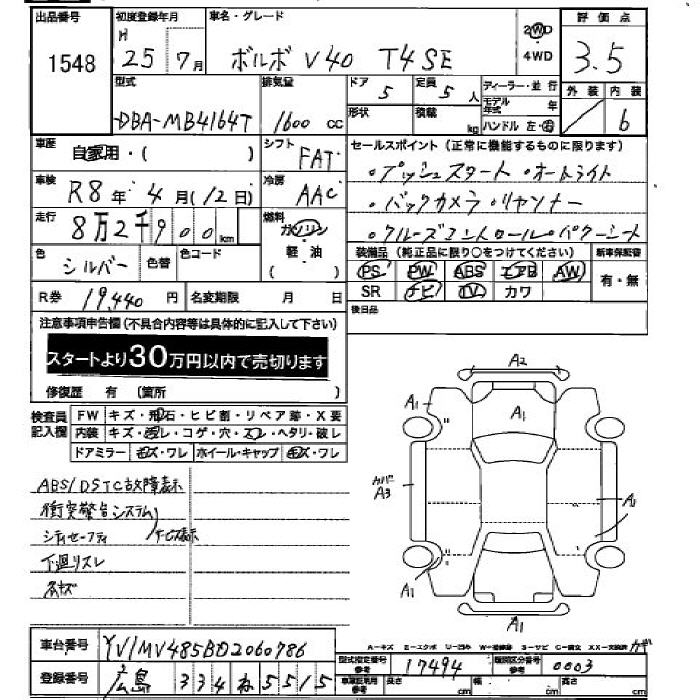 出品番号 初度登録年月 車名・グレード 評価点
1548 H 25年 7月 ボルボ V40 T4SE 2WD・4WD 3.5
型式 排気量 ドア 定員 ディーラー・並行 外装 内装
DBA-MB4164T 1600cc 5 5人 モデル年式 年 6
形状 積載 kg ハンドル 左・右
車歴 自家用・( ) シフト FAT セールスポイント(正常に機能するものに限ります)
車検 R8年 4月(12日) 冷房 AAC ・プッシュスタート ・オートライト
走行 8万2千900km 燃料 ガソリン・軽・油( ) ・バックカメラ ・ソナー
・クルーズコントロール ・パワーシート
色 シルバー 色替 色コード 装備品(純正品に限り○をつけてください) 新車保証書
PS PW ABS エアB AW 有・無
R券 19,440円 名変期限 月 日 SR ナビ TV カワ
後日品
注意事項申告欄(不具合内容等は具体的に記入して下さい)
スタートより30万円以内で売切ります
修復歴 有 (箇所 )
検査員記入欄 FW キズ・飛石・ヒビ割・リペア跡・X要
内装 キズ・汚レ・コゲ・穴・スレ・ヘタリ・破レ
ドアミラー キズ・ワレ ホイール・キャップ キズ・ワレ
ABS/DSTC故障表示
衝突警告システム
シティセーフティ サービス表示
下廻リスレ
小キズ
A2
A1 A1
カバー A3 A1
A1
A1
車台番号 YV1MV485BD2060786
A-キズ E-エクボ U-凹み W-補修跡 S-サビ C-腐食 XX-交換済
型式指定番号 参考 17494 類別区分番号 参考 0003
登録番号 広島 334 ね 5515 車庫証明用 参考 長さ cm 幅 cm 高さ cm